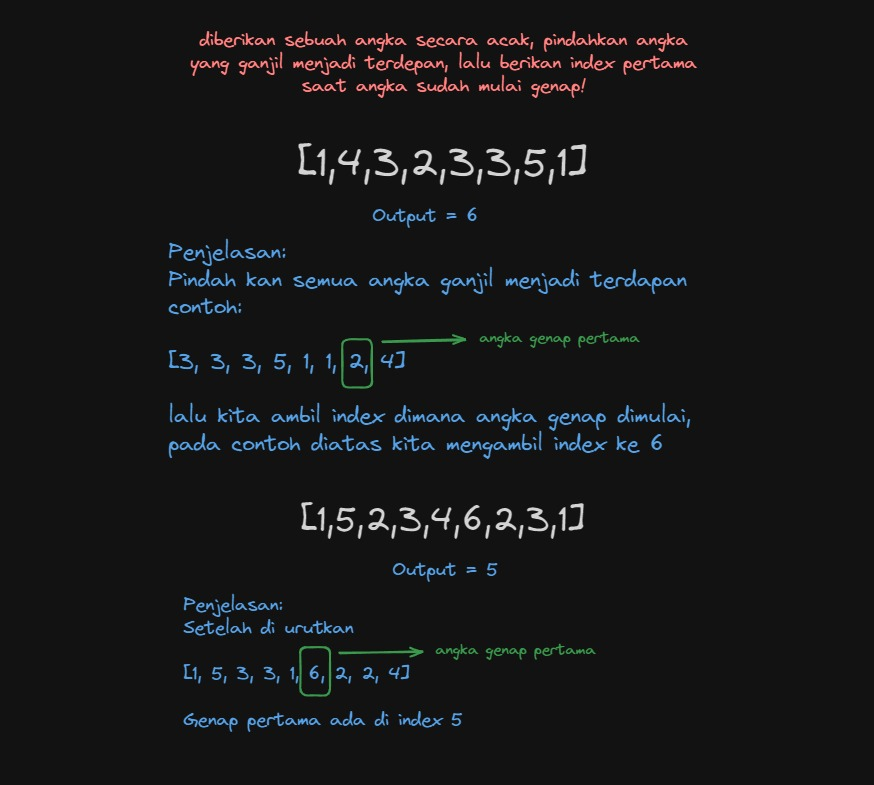 diberikan sebuah angka secara acak, pindahkan angka
yang ganjil menjadi terdepan, lalu berikan index pertama
saat angka sudah mulai genap!
[1,4,3,2,3,3,5,1]
Output = 6
Penjelasan:
Pindah kan semua angka ganjil menjadi terdapan
contoh:
angka genap pertama
[3, 3, 3, 5, 1, 1, 2, 4]
lalu kita ambil index dimana angka genap dimulai,
pada contoh diatas kita mengambil index ke 6
[1,5,2,3,4,6,2,3,1]
Output = 5
Penjelasan:
Setelah di urutkan
angka genap pertama
[1, 5, 3, 3, 1, 6, 2, 2, 4]
Genap pertama ada di index 5